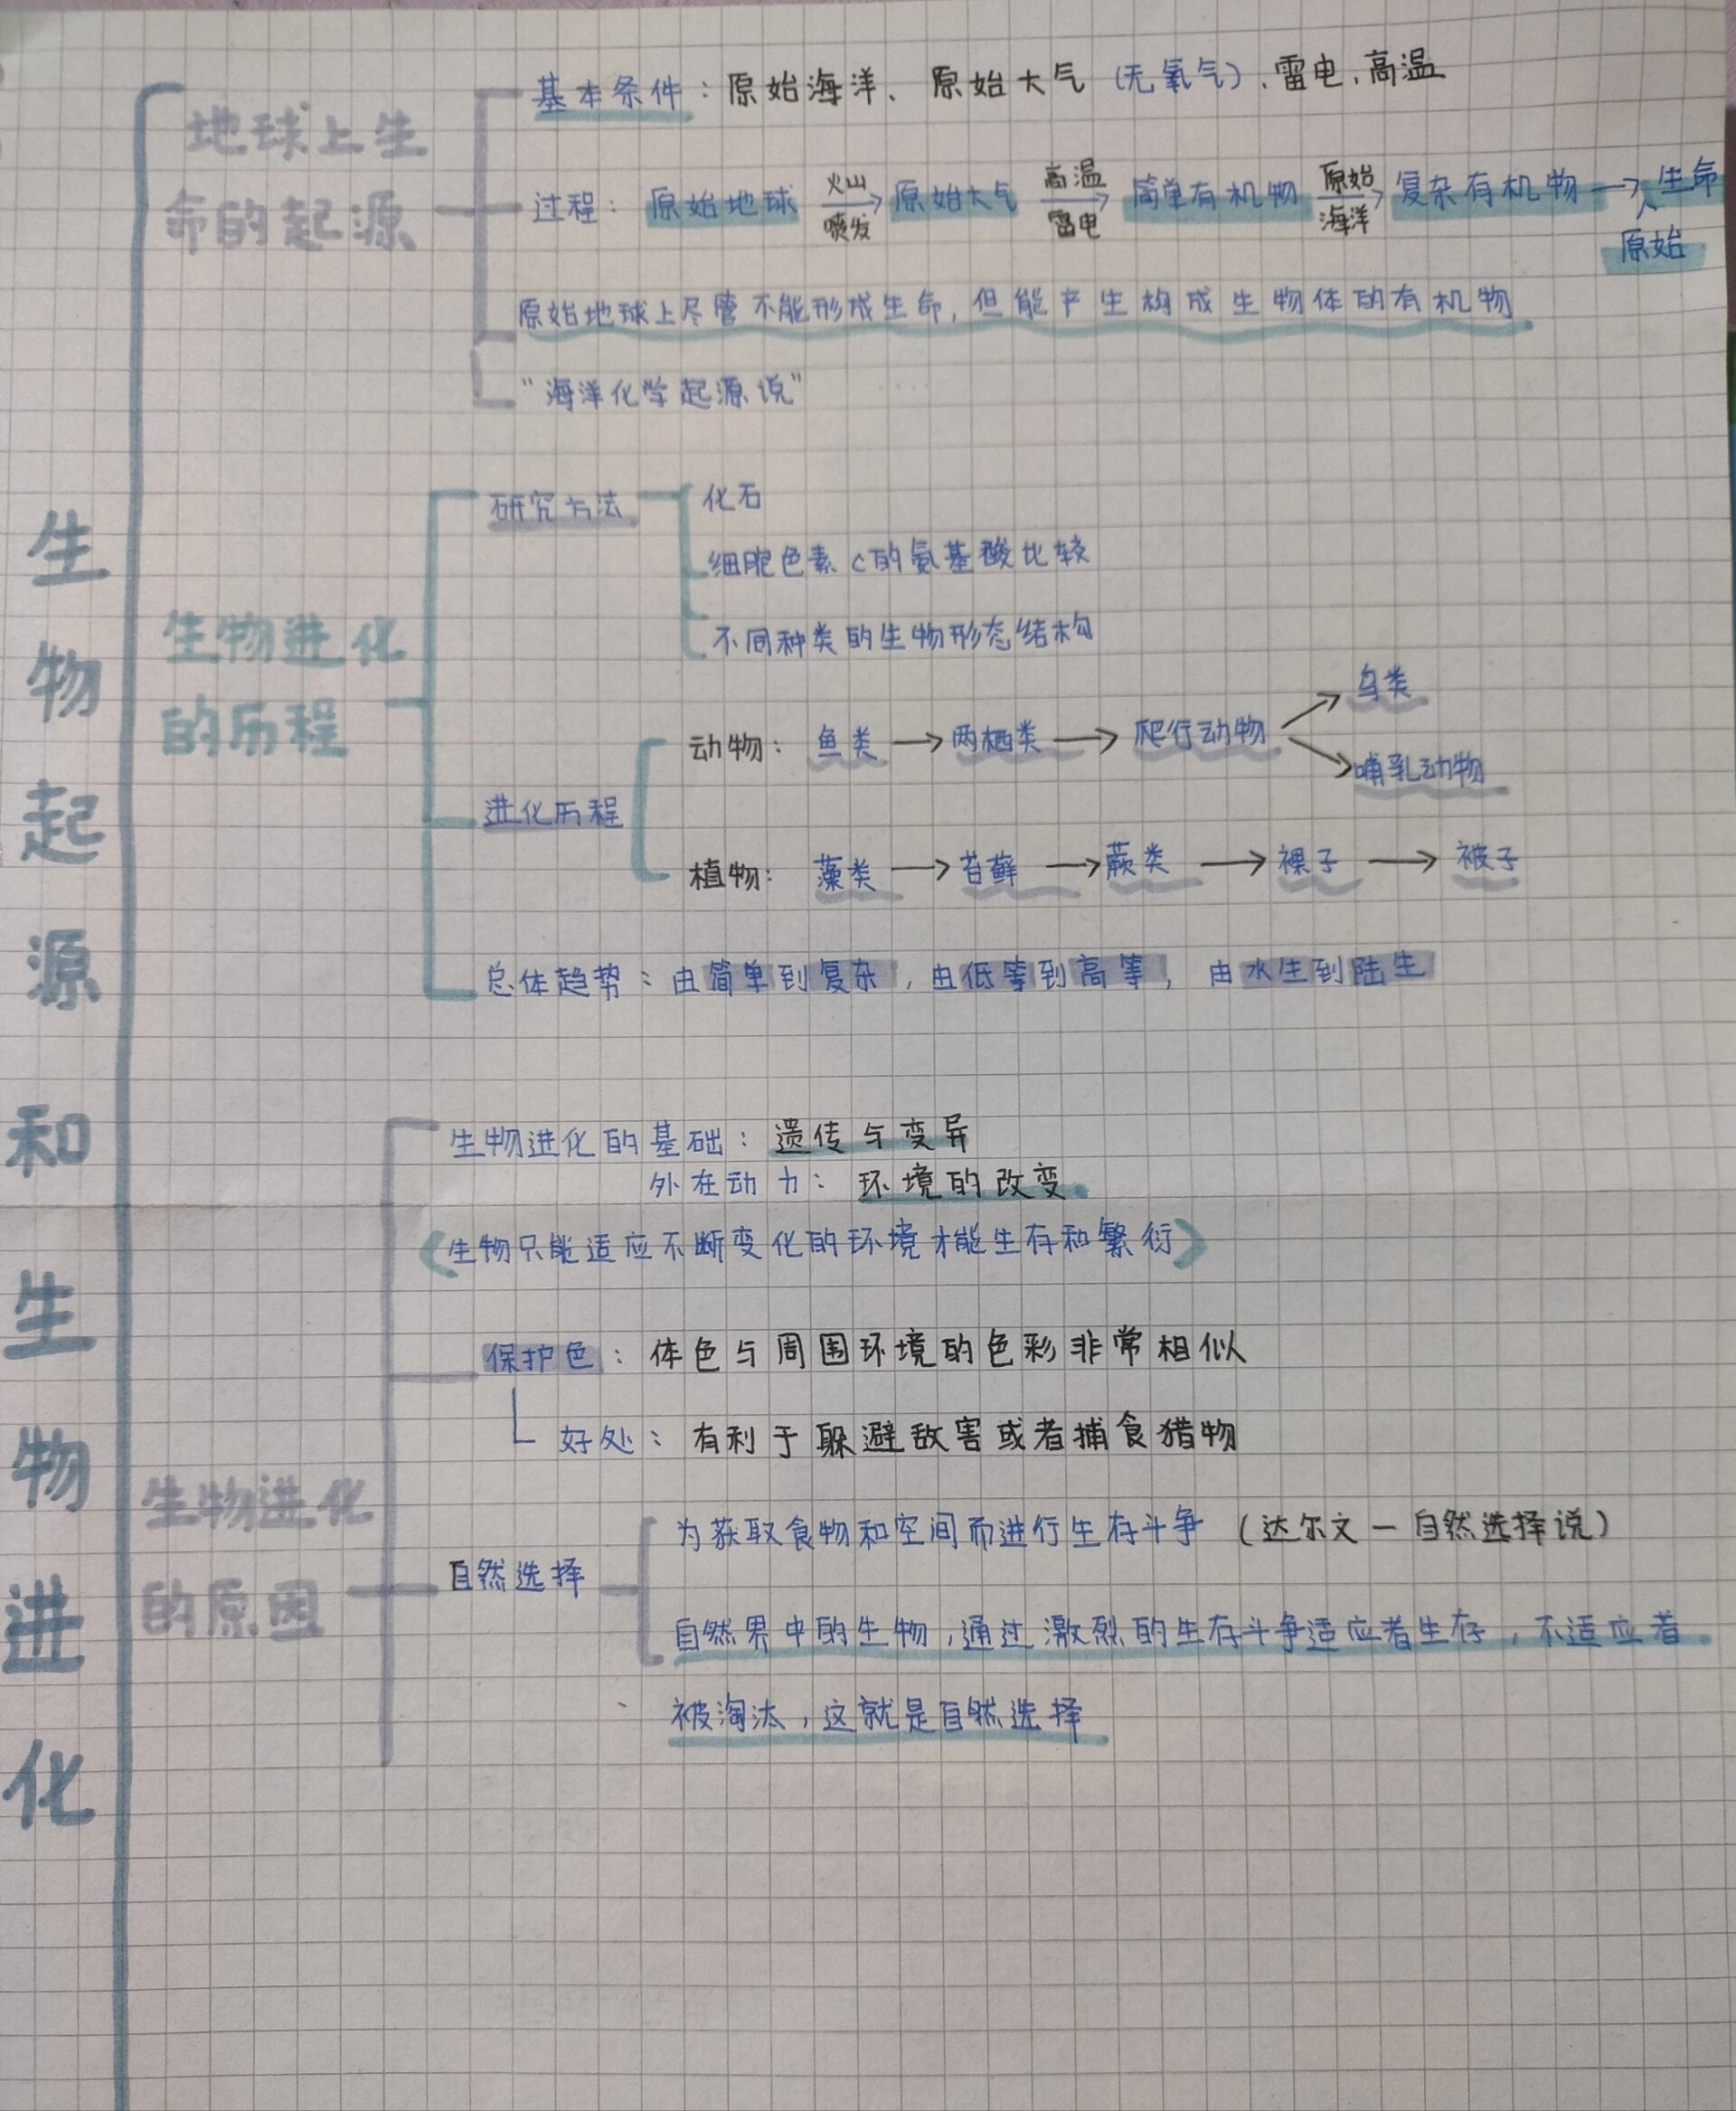 生物起源和生物进化
地球上生
命的起源
基本条件：原始海洋、原始大气（无氧气）、雷电、高温
过程：原始地球 火山 喷发 → 原始大气 高温 雷电 → 简单有机物 原始 海洋 → 复杂有机物 → 生命
原始
原始地球上尽管不能形成生命，但能产生构成生物体的有机物
“海洋化学起源说”
生物进化
的历程
研究方法
化石
细胞色素c的氨基酸比较
不同种类的生物形态结构
进化历程
动物：鱼类 → 两栖类 → 爬行动物
鸟类
哺乳动物
植物：藻类 → 苔藓 → 蕨类 → 裸子 → 被子
总体趋势：由简单到复杂，由低等到高等，由水生到陆生
生物进化
的原因
生物进化的基础：遗传与变异
外在动力：环境的改变
〈生物只能适应不断变化的环境才能生存和繁衍〉
保护色：体色与周围环境的色彩非常相似
好处：有利于躲避敌害或者捕食猎物
自然选择
为获取食物和空间而进行生存斗争（达尔文—自然选择说）
自然界中的生物，通过激烈的生存斗争适应者生存，不适应者
被淘汰，这就是自然选择